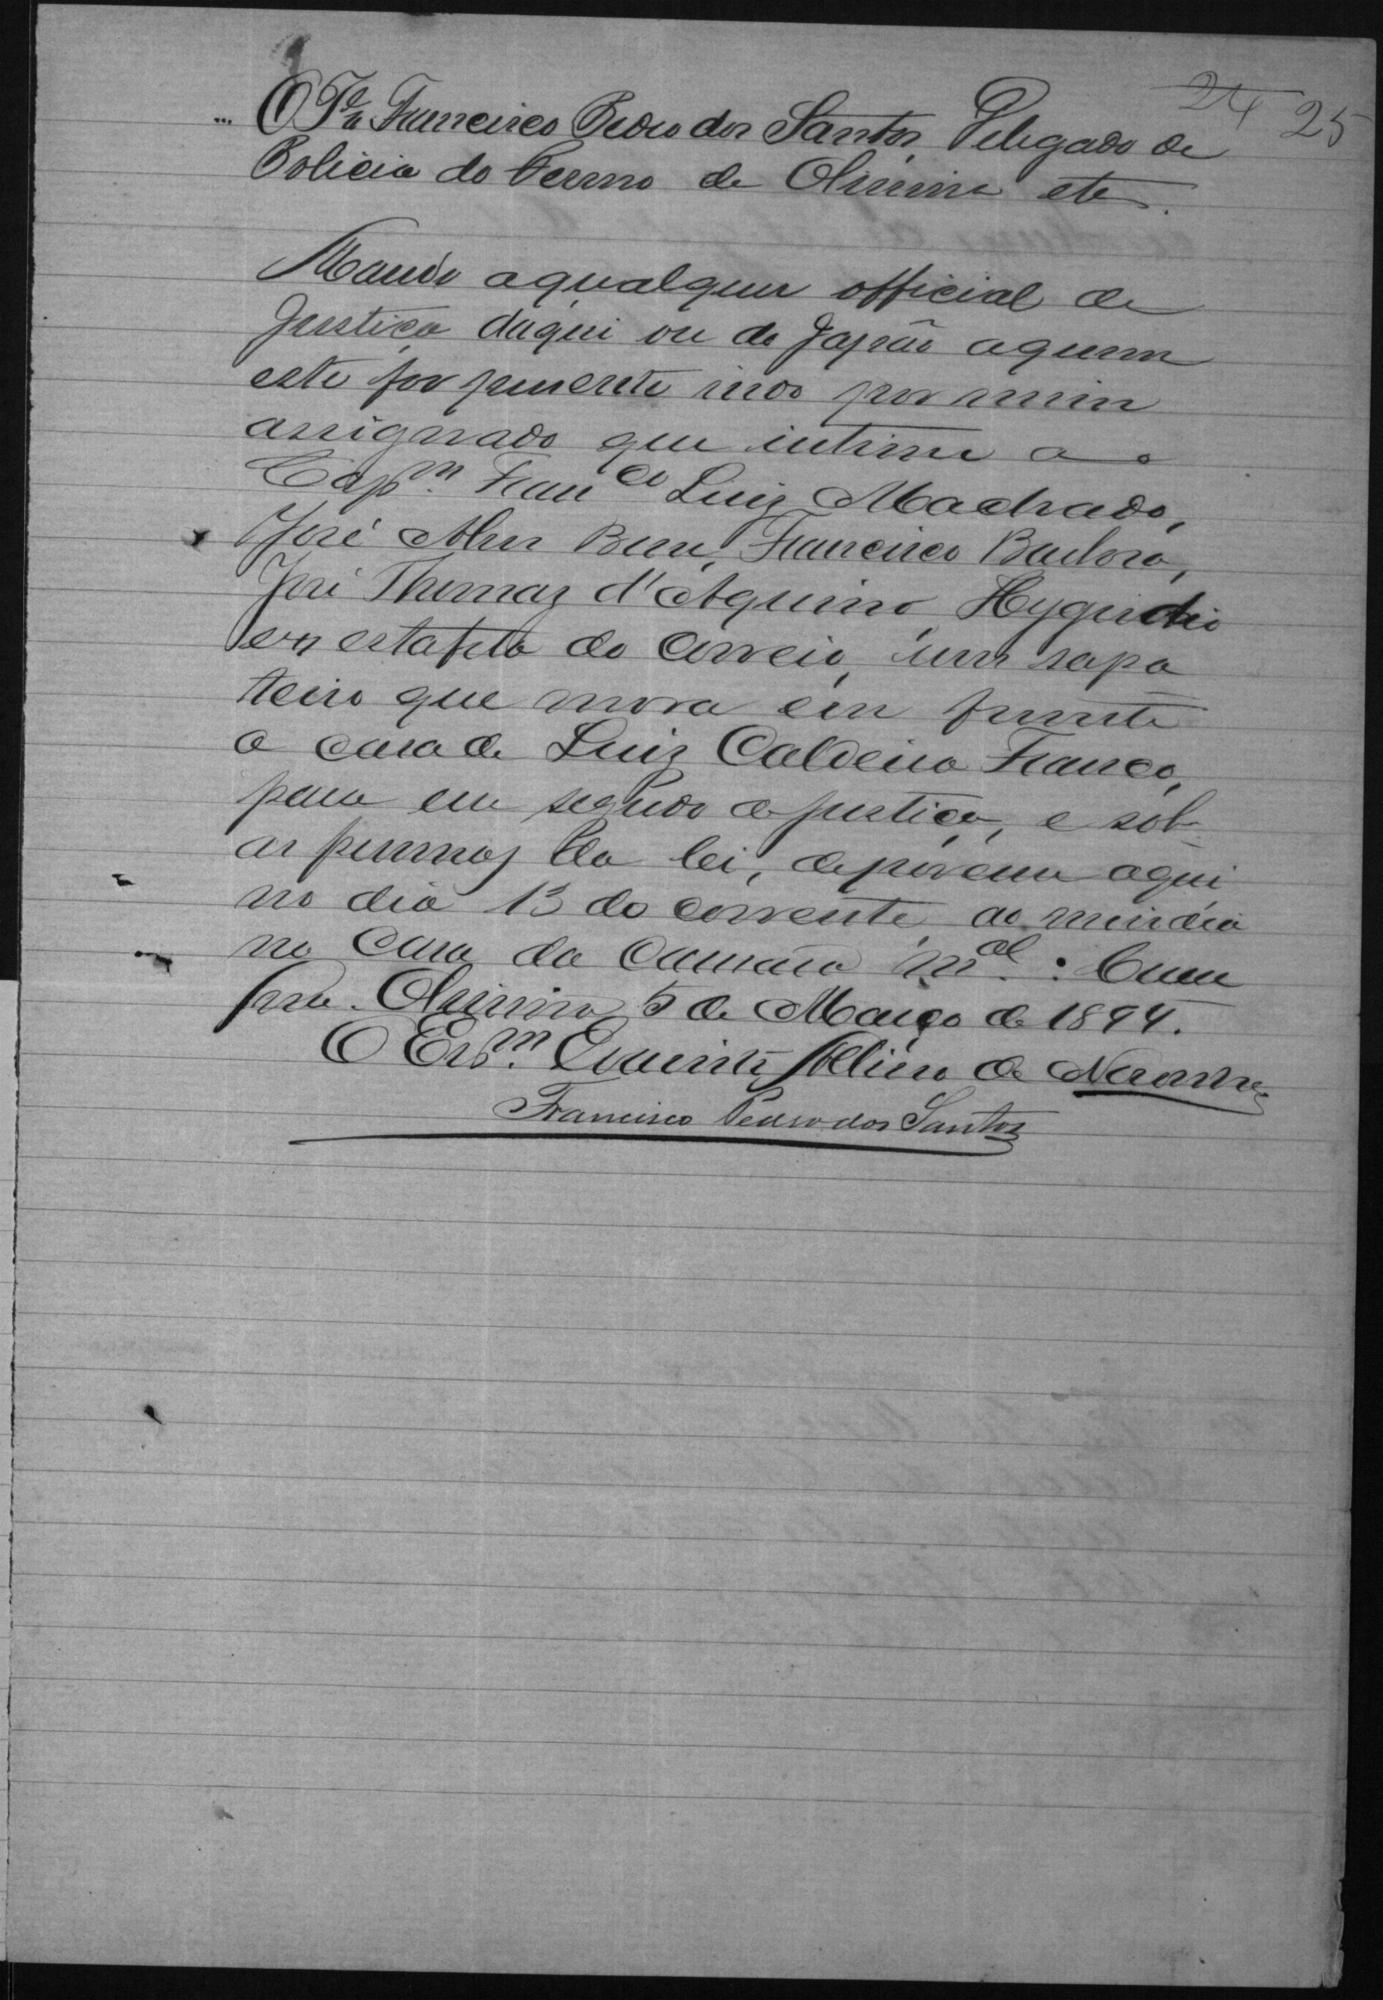 24 25
O Te. Francisco Pedro dos Santos, Delegado de
Policia do termo de Oliveira etc.
Mando a qualquer official de
Justiça daqui ou do Japão aquem
este for presente indo por mim
assignado que intime ao
Capm. Franco Luiz Machado,
José Alves Bem, Francisco Barbosa,
José Thomaz d'Aquino, Hygidio
ex estafeta do Correio, um sapa
teiro que mora em frente
a casa de Luiz Caldeira Franco,
para em segredo de justiça, e sob
as pennas da lei, deporem aqui
no dia 13 do corrente, ao meio dia
na Casa da Camara Mal.: Cum
pra. Oliveira 5 de Março de 1894.
O Escm. de
Francisco Pedro dos Santos